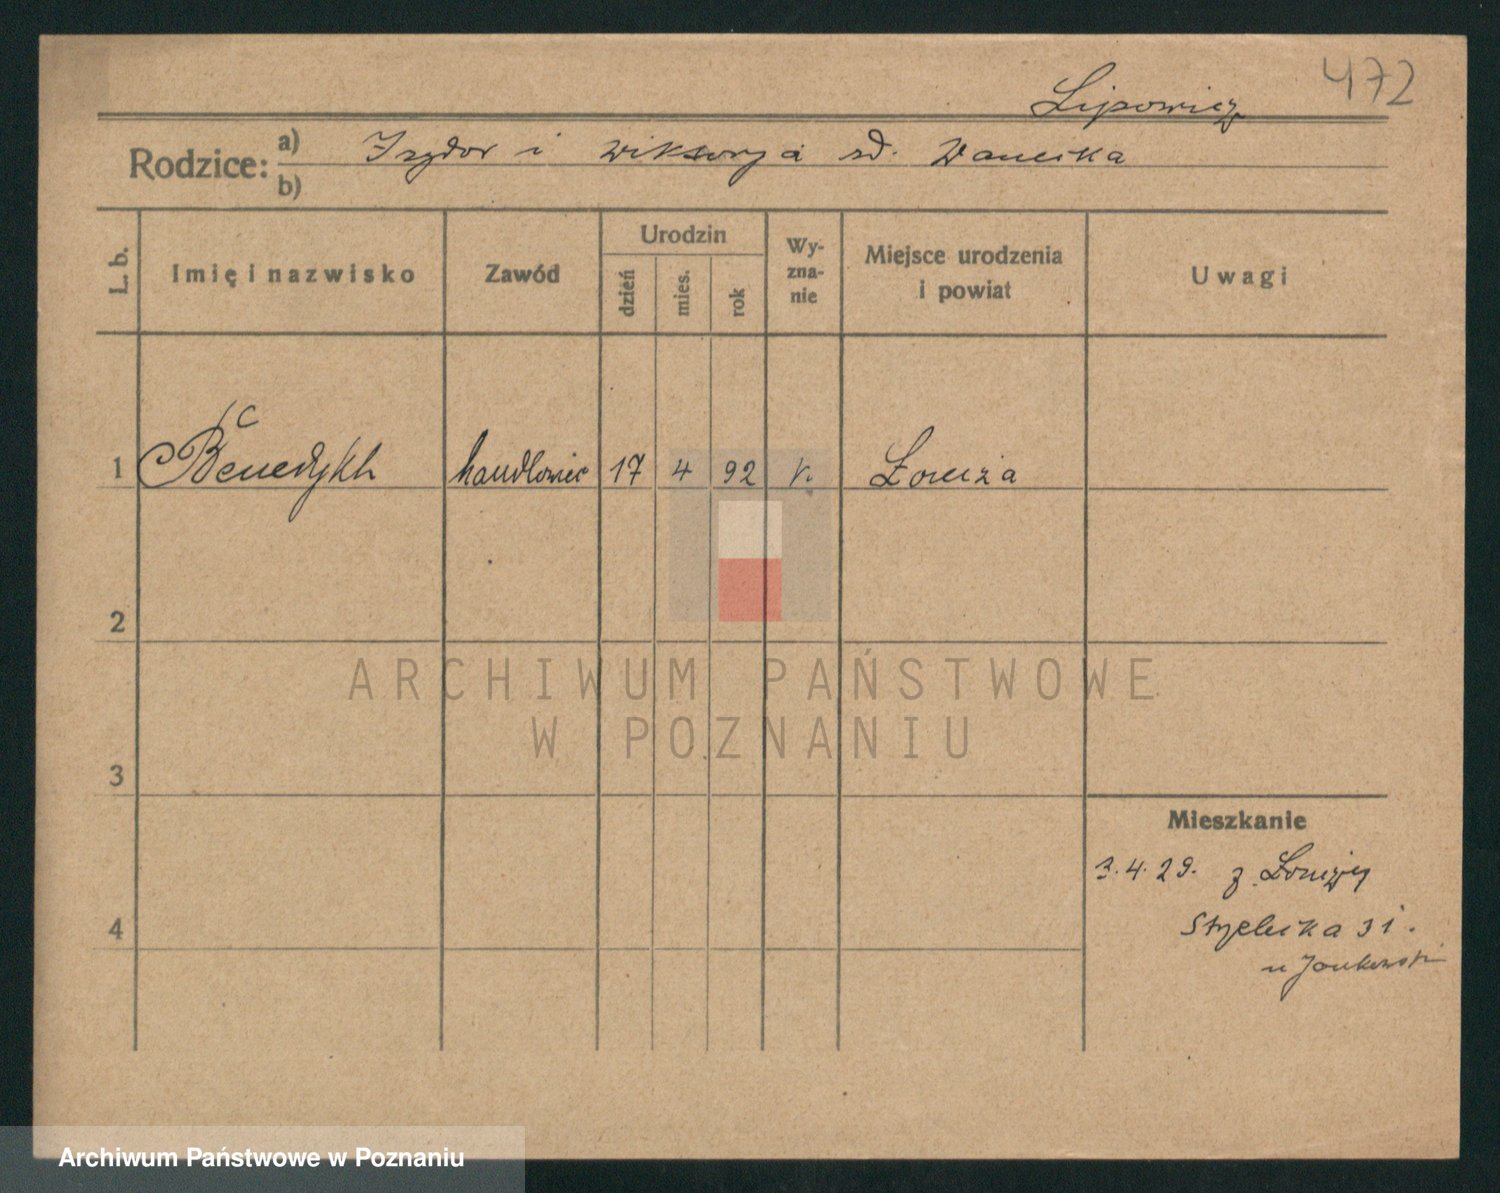 472
Lipowicz
Rodzice: a) Izydor i Wiktorja
b)
L. b.
Imię i nazwisko
Zawód
Urodzin
dzień
mies.
rok
Wy-
zna-
nie
Miejsce urodzenia
i powiat
Uwagi
1 Benedykt handlowiec 17 4 92 Łomża
2
3
4
Mieszkanie
3.4.29. z Łomży
Strzelecka 31.
ARCHIWUM PAŃSTWOWE
W POZNANIU
Archiwum Państwowe w Poznaniu